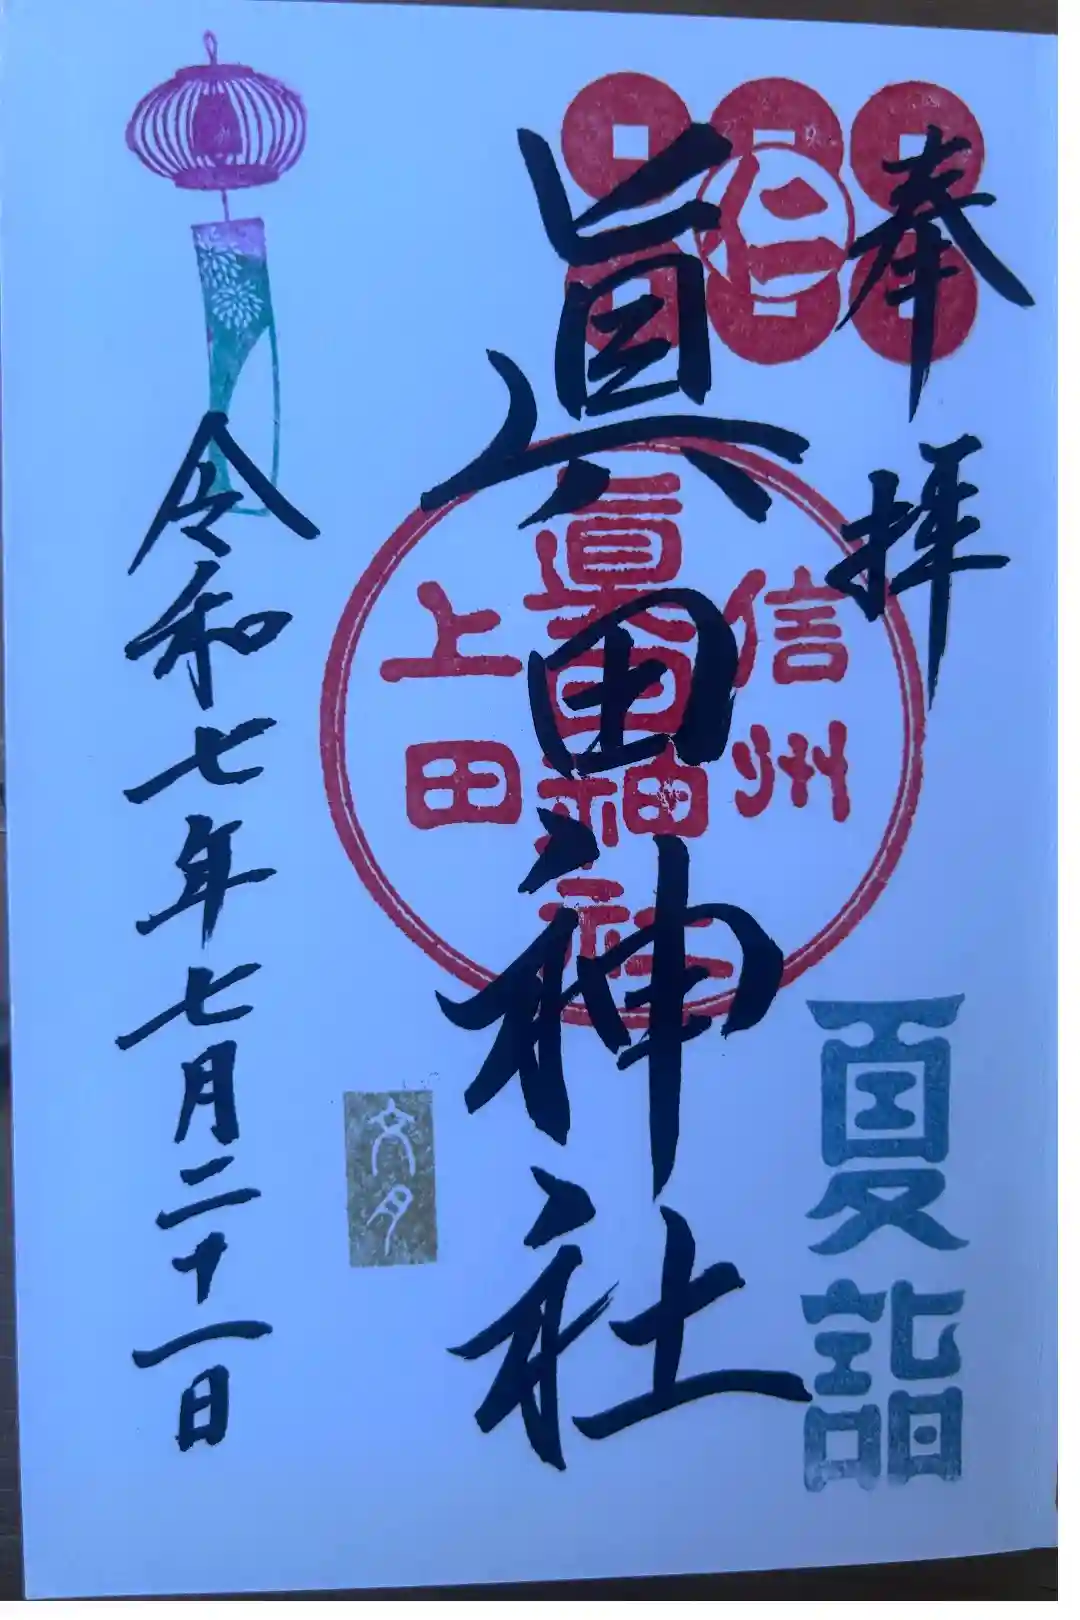 奉拝
夏詣
仁
眞田神社
信州
眞田神社
上田
文月
令和七年七月二十一日